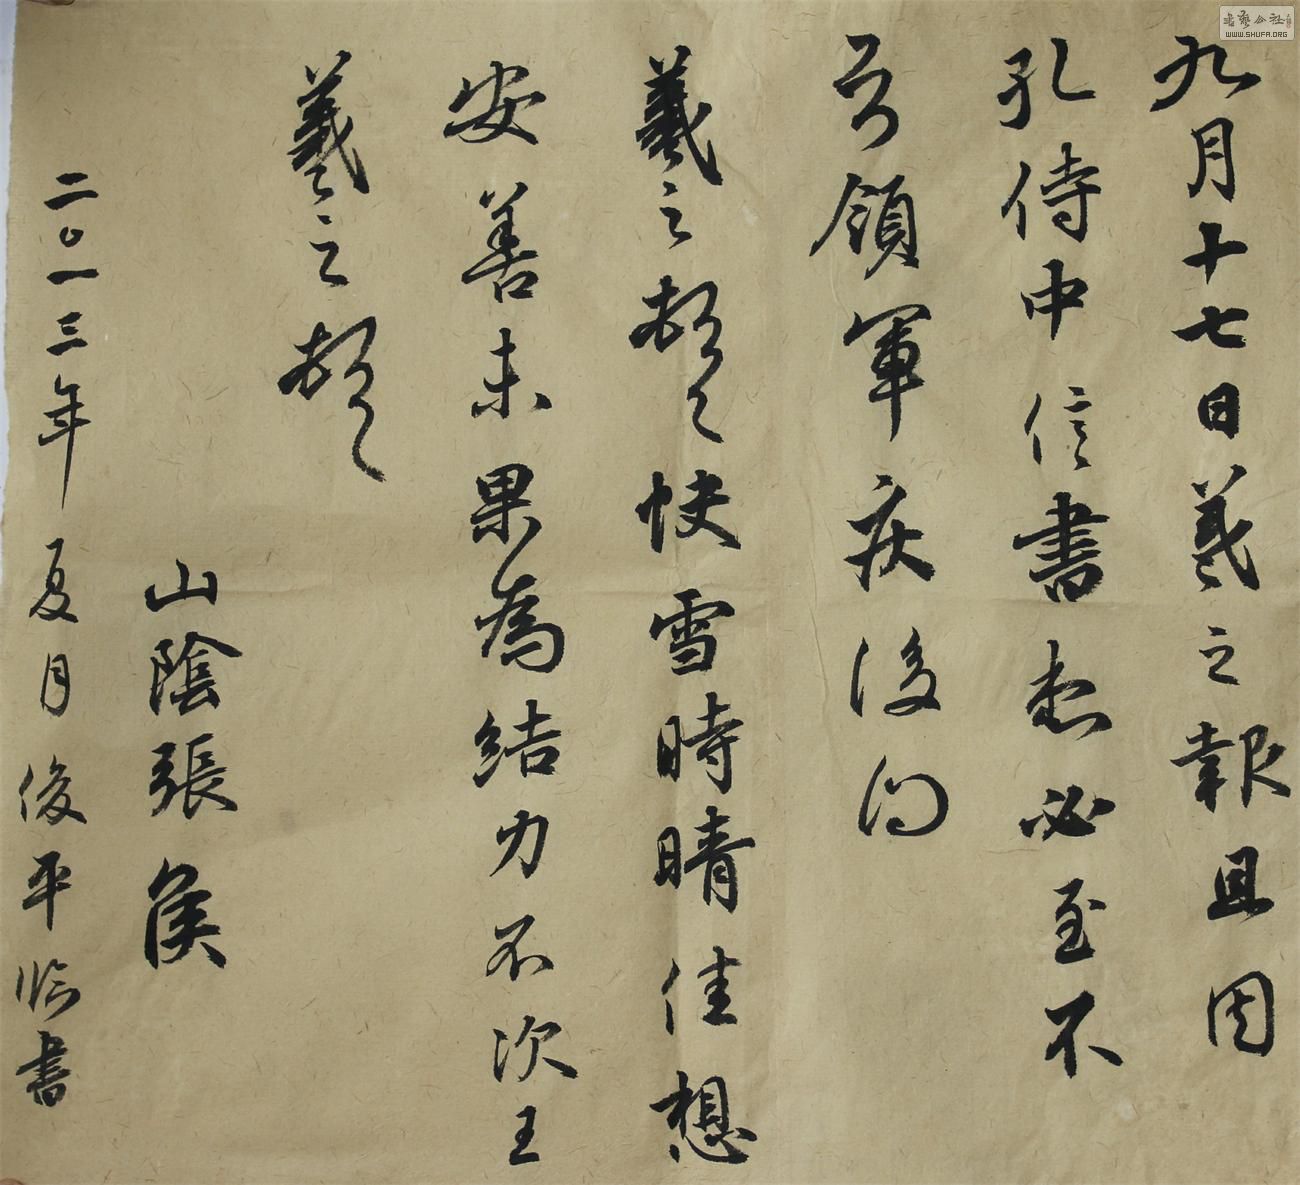 九月十七日羲之報且因
孔侍中信書想必至不
領軍疾後問
羲之頓首快雪時晴佳想
安善未果為結力不次王
羲之頓首
山陰張侯
二〇一三年夏月俊平臨書
書藝公社
WWW.SHUFA.ORG